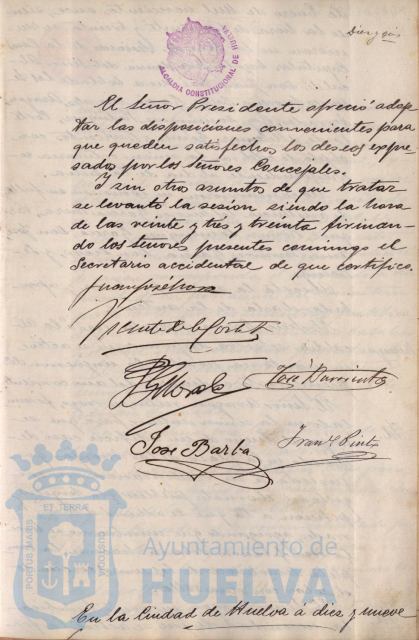 Diez y seis
ALCALDIA CONSTITUCIONAL DE HUELVA
El Señor Presidente ofreció adop
tar las disposiciones convenientes para
que queden satisfechos los deseos expre
sados por los Señores Concejales.
I sin otro asunto de que tratar
se levantó la sesion siendo la hora
de las veinte y tres y treinta firman-
do los señores presentes conmigo el
Secretario accidental de que certifico.
Juan José
Vicente de la Corte
José Barrientos
José Barba
Franco Pinto
ET TERRÆ
PORTUS MARIS
CUSTODIA
Ayuntamiento de
HUELVA
En la Ciudad de Huelva á diez y nueve